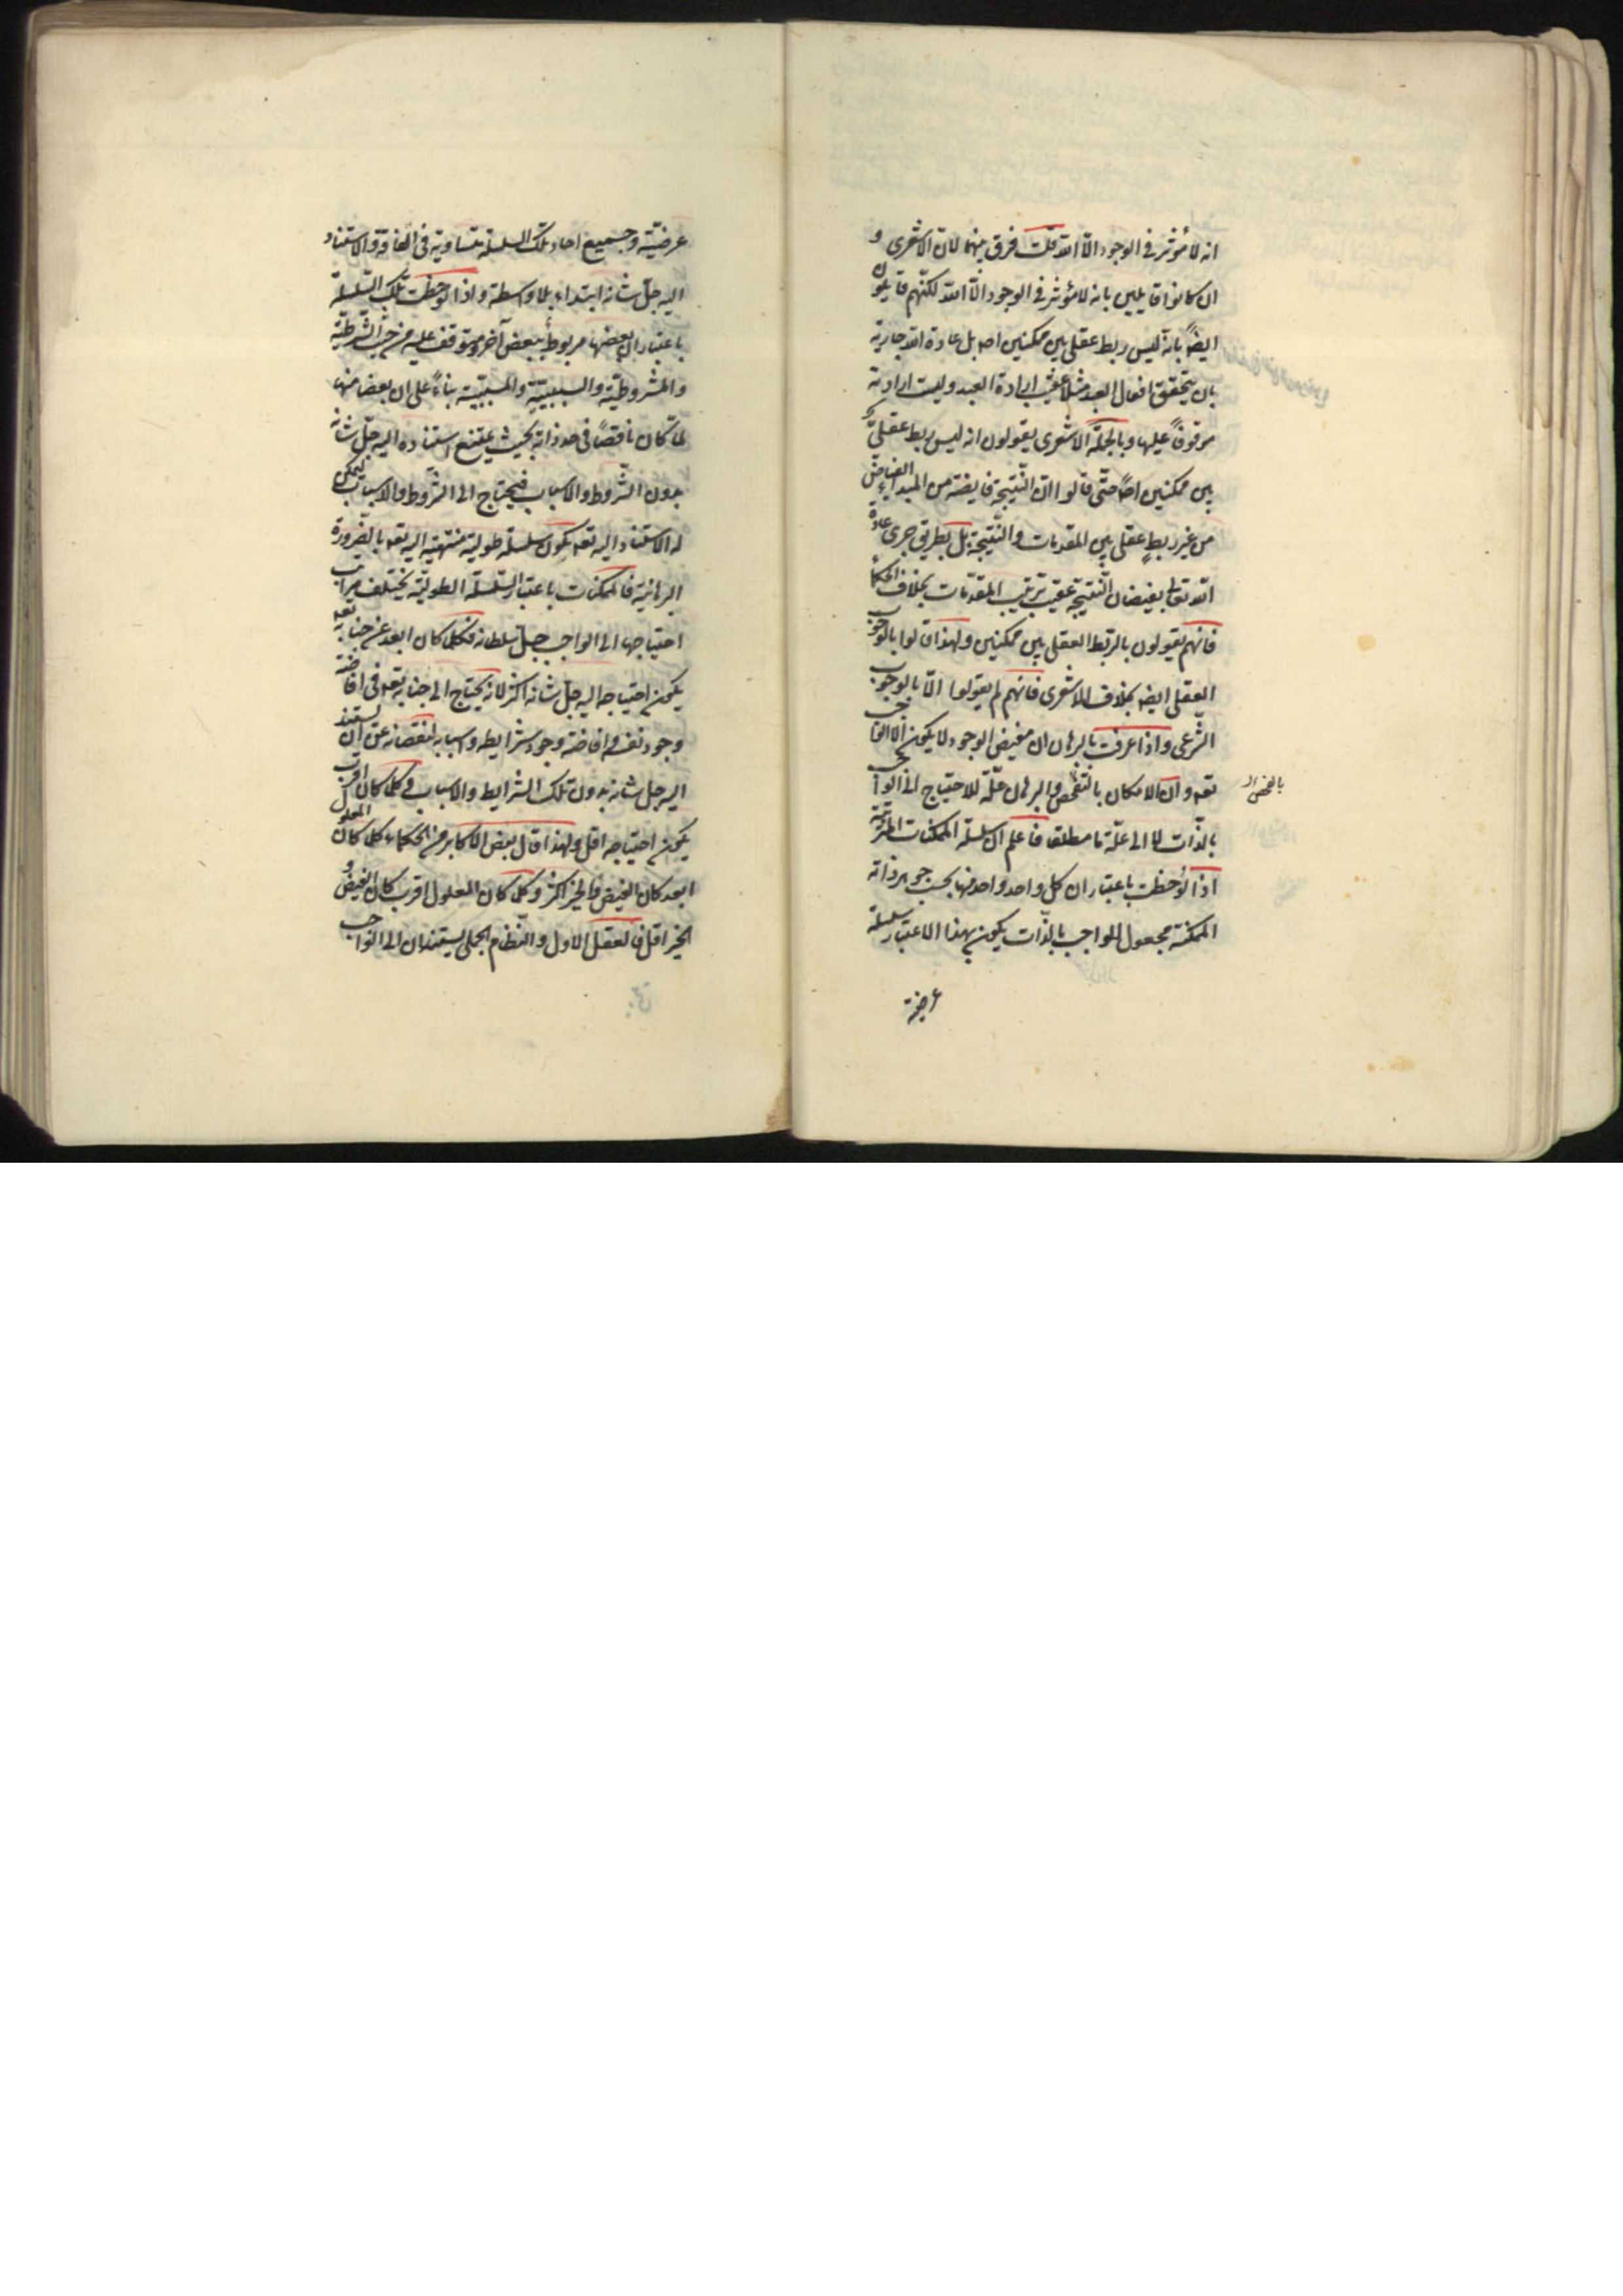 انه لا مؤثر في الوجود الّا الله قلت فرق بينهما لانّ الاشعرى و
ان كانوا قايلين بانه لا مؤثر في الوجود الّا الله لكنّهم قايلون
ايضاً بانه ليس ربط عقلى بين ممكنين اصلا بل عادة الله جارية
بان يتحقق افعال العبد مثلا عقيب ارادة العبد وليست ارادته
موقوفاً عليها وبالجملة الاشعرى يقولون انه ليس ربط عقلىّ
بين ممكنين اصلاً حتّى قالوا انّ النّتيجة فايضة من المبداء الفياض
من غير ربط عقلى بين المقدمات والنّتيجة بل بطريق جرى عادة
الله تعالى بفيضان النّتيجة عقيب ترتيب المقدّمات بخلاف الحكماء
فانّهم يقولون بالرّبط العقلى بين ممكنين ولهذا قالوا بالوجوب
العقلى ايضا بخلاف الاشعرى فانّهم لم يقولوا الّا بالوجوب
الشّرعى واذا عرفت بالبرهان ان مفيض الوجود لا يكون الّا الواجب
تعه وان الامكان بالتفحّص والبرهان علّة للاحتياج الى الواجب
بالذّات لا الى علّة ما مطلقا فاعلم ان سلسلة الممكنات المترتبة
اذا لوحظت باعتبار ان كل واحد واحد منها بحسب جوهر ذاته
الممكنة مجعول للواجب بالذّات يكون بهذا الاعتبار سلسلة
عرضيّة
بالفحص
عرضيّة وجميع احاد تلك السلسلة متساوية فى الفاقة والاستناد
اليه جلّ شانه ابتداء بلا واسطة واذا لوحظت تلك السّلسلة
باعتبار ان بعضها مربوط ببعض آخر ومتوقف عليه من حيث الشّرطيّة
والمشروطيّة والسببيّة والمسببيّة بناءً على ان بعضا منها
لمّا كان ناقصاً فى حد ذاته بحيث يمتنع استناده اليه جلّ شانه
بدون الشّروط والاسباب فيحتاج الى الشّروط والاسباب ليمكن
له الاستناد اليه تعه يكون سلسلة طولية منتهية اليه تعه بالضّرورة
البرهانية فالممكنات باعتبار السّلسلة الطوليّة يختلف مراتب
احتياجها الى الواجب جلّ سلطانه فكلّما كان ابعد عن جنابه تعه
يكون احتياجه اليه جلّ شانه اكثر لانه يحتاج الى جنابه تعه فى افاضة
وجود نفسه وافاضة وجود شرايطه واسبابه لنقصانه عن ان يستند
اليه جل شانه بدون تلك الشرايط والاسباب وكلّما كان اقرب
يكون احتياجه اقل ولهذا قال بعض الاكابر من الحكماء كلما كان المعلول
ابعد كان الفيض والخير اكثر وكلّما كان المعلول اقرب كان الفيض و
الخير اقل فالعقل الاول والنّظام الجملى يستندان الى الواجب